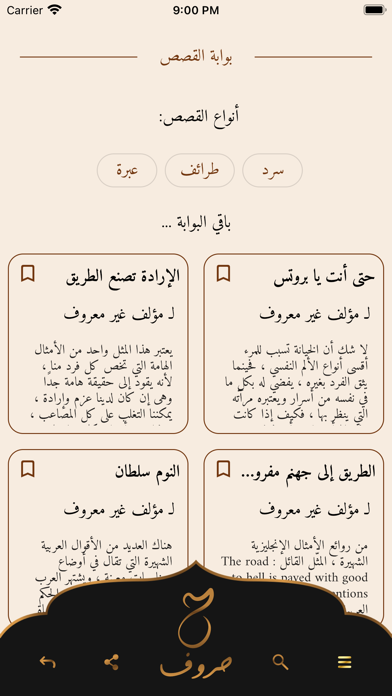 Carrier 9:00 PM
بوابة القصص
أنواع القصص:
سرد
طرائف
عبرة
باقي البوابة ...
حتى أنت يا بروتس
لـ مؤلف غير معروف
لا شك أن الخيانة تسبب للمرء
أقسى أنواع الألم النفسي ، فحينما
يثق الفرد بغيره ، يفضي له بكل ما
في نفسه من أسرار ويعتبره مرآته
التي ينظر بها ، فكيف إذا كانت
الإرادة تصنع الطريق
لـ مؤلف غير معروف
يعتبر هذا المثل واحد من الأمثال
الهامة التي تخص كل فرد منا ،
لأنه يقود إلى حقيقة هامة جدًا
وهى إن كان لدينا عزم وإرادة ،
يمكننا التغلب على كل المصاعب ،
الطريق إلى جهنم مفرو...
لـ مؤلف غير معروف
من روائع الأمثال الإنجليزية
الشهيرة ، المثل القائل : The road
to hell is paved with good
النوم سلطان
لـ مؤلف غير معروف
هناك العديد من الأقوال العربية
الشهيرة التي تقال في أوضاع
ويشتهر العرب
حروف